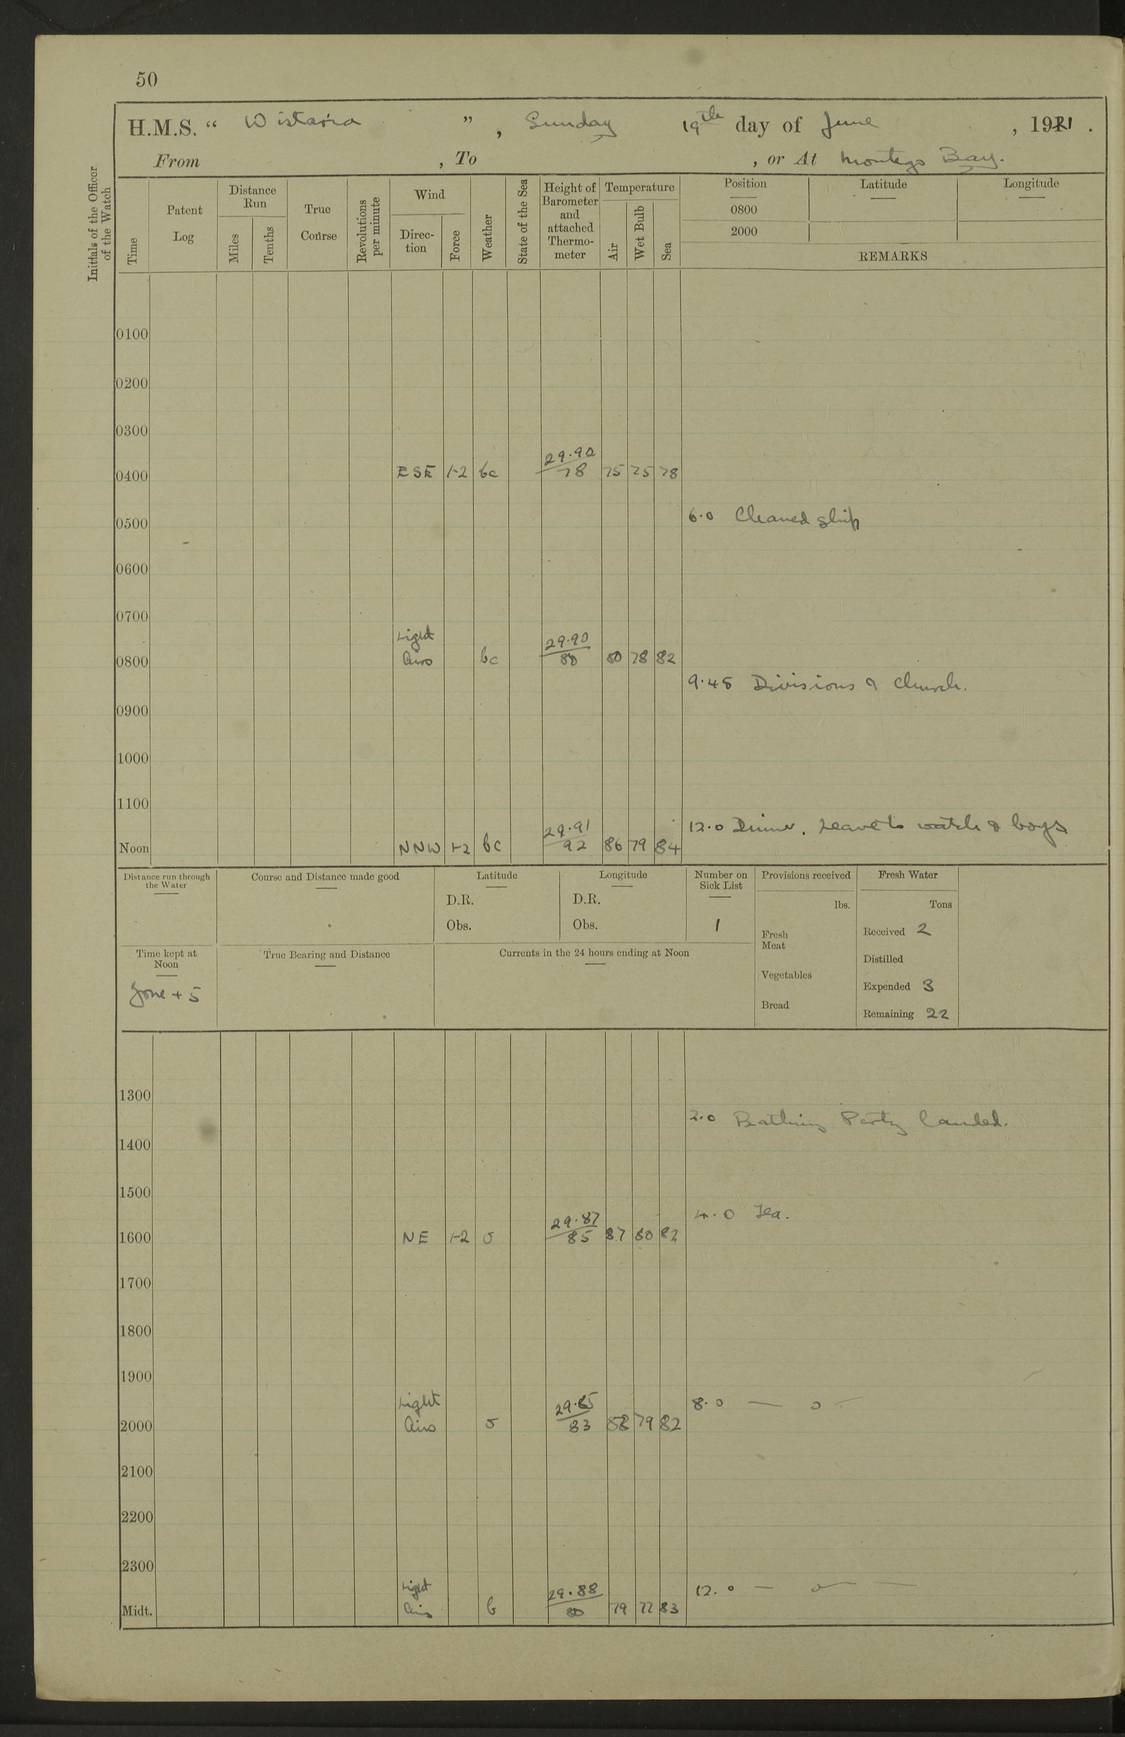 50
H.M.S. “ Wistaria ” , Sunday 19th day of June , 1921 .
From , To , or At Montego Bay.
Initials of the Officer of the Watch
Time
Patent Log
Distance Run
Miles
Tenths
True Course
Revolutions per minute
Wind
Direc-tion
Force
Weather
State of the Sea
Height of Barometer and attached Thermo-meter
Temperature
Air
Wet Bulb
Sea
Position
Latitude
Longitude
0800
2000
REMARKS
0100
0200
0300
0400 ESE 1-2 bc 29.90 78 75 75 78
6.0 Cleaned ship
0500
0600
0700
0800 Light Airs bc 29.90 80 80 78 82
9.45 Divisions & Church.
0900
1000
1100
12.0 Dinner. Leave to watch & boys
Noon NNW 1-2 bc 29.91 92 86 79 84
Distance run through the Water
Course and Distance made good
Latitude
D.R.
Obs.
Longitude
D.R.
Obs.
Number on Sick List
1
Provisions received
lbs.
Fresh Meat
Vegetables
Bread
Fresh Water
Tons
Received 2
Distilled
Expended 3
Remaining 22
Time kept at Noon
Zone + 5
True Bearing and Distance
Currents in the 24 hours ending at Noon
1300
2.0 Bathing Party landed.
1400
1500
4.0 Tea.
1600 NE 1-2 o 29.87 85 87 80 82
1700
1800
1900
8.0 — o
2000 Light Airs o 29.85 83 82 79 82
2100
2200
2300
12.0 — o —
Midt. Light Airs b 29.88 80 79 77 83